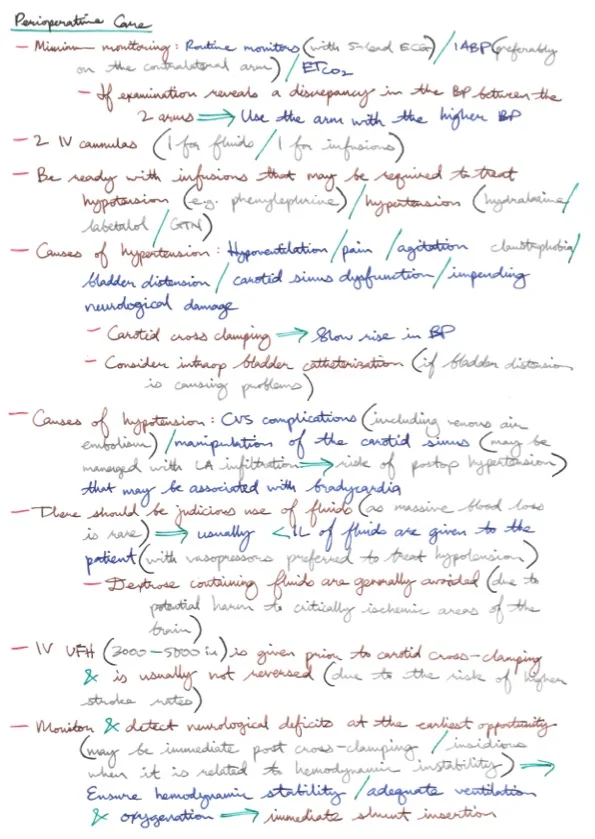 Perioperative Care
— Minimum monitoring: Routine monitors (with 5-lead ECG) / IABP (preferably
on the contralateral arm) / ETCO2
— If examination reveals a discrepancy in the BP between the
2 arms ⟹ Use the arm with the higher BP
— 2 IV cannulas (1 for fluids / 1 for infusions)
— Be ready with infusions that may be required to treat
hypotension (e.g. phenylephrine) / hypertension (hydralazine /
labetalol / GTN)
— Causes of hypertension: Hypoventilation / pain / agitation claustrophobia /
bladder distension / carotid sinus dysfunction / impending
neurological damage
— Carotid cross clamping → Slow rise in BP
— Consider intraop bladder catheterization (if bladder distension
is causing problems)
— Causes of hypotension: CVS complications (including venous air
embolism) / manipulation of the carotid sinus (may be
managed with LA infiltration ⟹ risk of postop hypertension)
that may be associated with bradycardia
— There should be judicious use of fluids (as massive blood loss
is rare) ⟹ usually <1L of fluids are given to the
patient (with vasopressors preferred to treat hypotension)
— Dextrose containing fluids are generally avoided (due to
potential harm to critically ischemic areas of the
brain)
— IV UFH (3000-5000 iu) is given prior to carotid cross-clamping
& is usually not reversed (due to the risk of higher
stroke rates)
— Monitor & detect neurological deficits at the earliest opportunity
(may be immediate post cross-clamping / insidious
when it is related to hemodynamic instability) ⟹
Ensure hemodynamic stability / adequate ventilation
& oxygenation → immediate shunt insertion